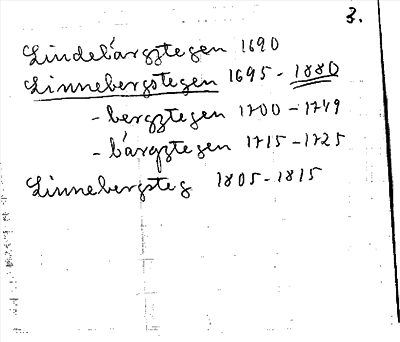 3.
Lindebärgztegen 1690
Linnebergstegen 1695-1880
-bergztegen 1700-1749
-bärgztegen 1715-1725
Linnebergsteg 1805-1815